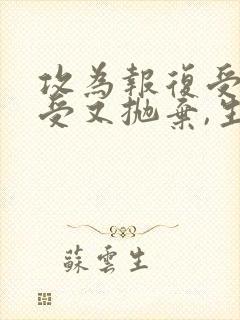 攻為報復受
受又拋棄,生
蘇雲生